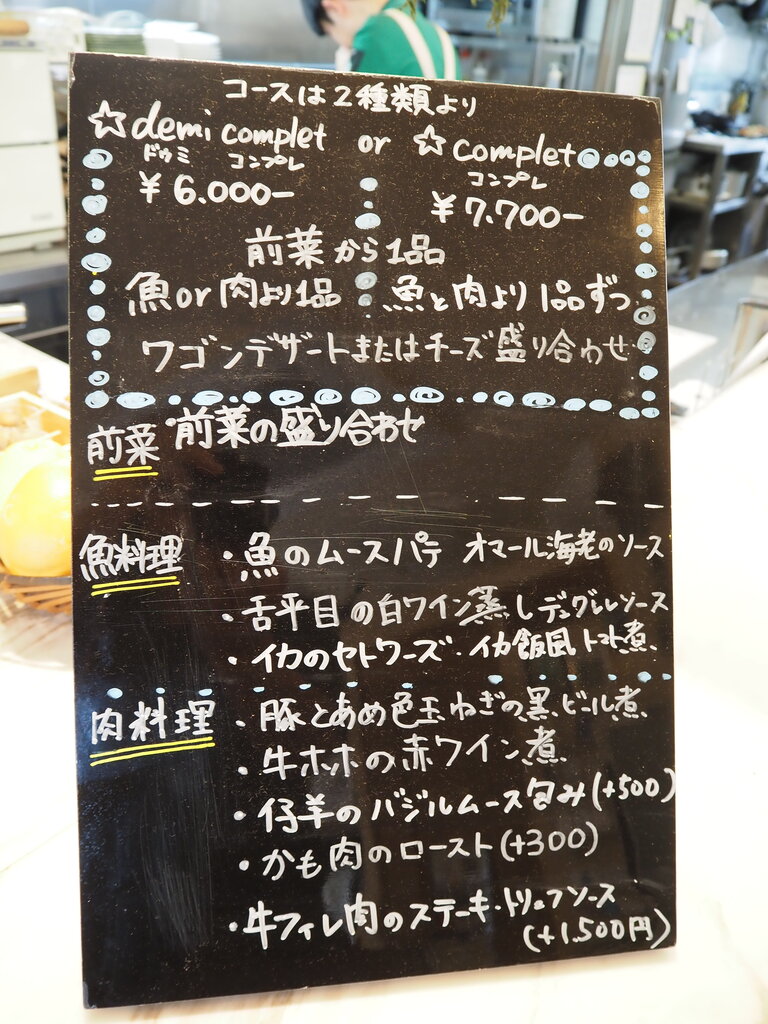 コースは2種類より
☆demi complet or ☆complet
ドゥミ コンプレ コンプレ
¥6.000- ¥7.700-
前菜から1品
魚or肉より1品 魚と肉より1品ずつ
ワゴンデザートまたはチーズ盛り合わせ
前菜・前菜の盛り合わせ
魚料理・魚のムースパテ オマール海老のソース
・舌平目の白ワイン蒸しデュグレルソース
・イカのセトワーズ・イカ飯風トマト煮
肉料理・豚とあめ色玉ねぎの黒ビール煮
・牛ホホの赤ワイン煮
・仔羊のバジルムース包み(+500)
・かも肉のロースト(+300)
・牛フィレ肉のステーキ・トリュフソース
(+1.500円)